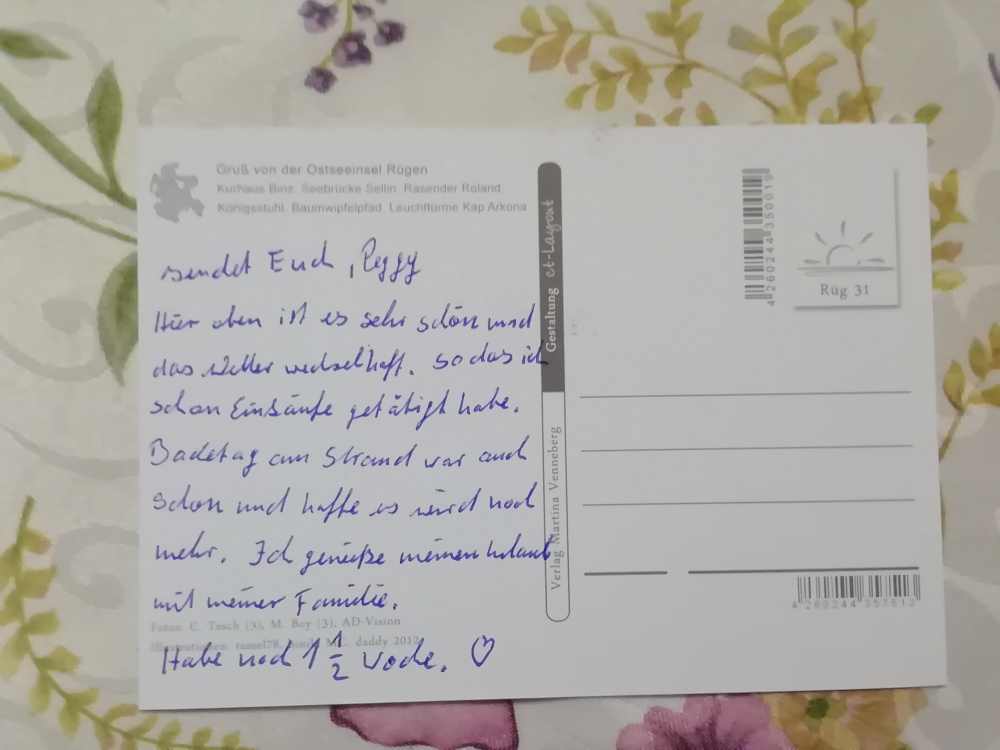 Gruß von der Ostseeinsel Rügen
Kurhaus Binz, Seebrücke Sellin, Rasender Roland
Königsstuhl, Baumwipfelpfad, Leuchttürme Kap Arkona
sendet Euch, Peggy
Hier oben ist es sehr schön und
das Wetter wechselhaft. so das ich
schon Einkäufe getätigt habe.
Badetag am Strand war auch
schon und hoffe es wird noch
mehr. Ich genieße meinen Urlaub
mit meiner Familie.
Fotos: C. Tesch (3), M. Boy (3), AD-Vision
Illustrationen: tassel78, daddy 2012
Habe noch 1 1/2 Woche. ♡
Gestaltung ct-Layout
Verlag Martina Venneberg
4 260244 350019
Rüg 31
4 260244 357513